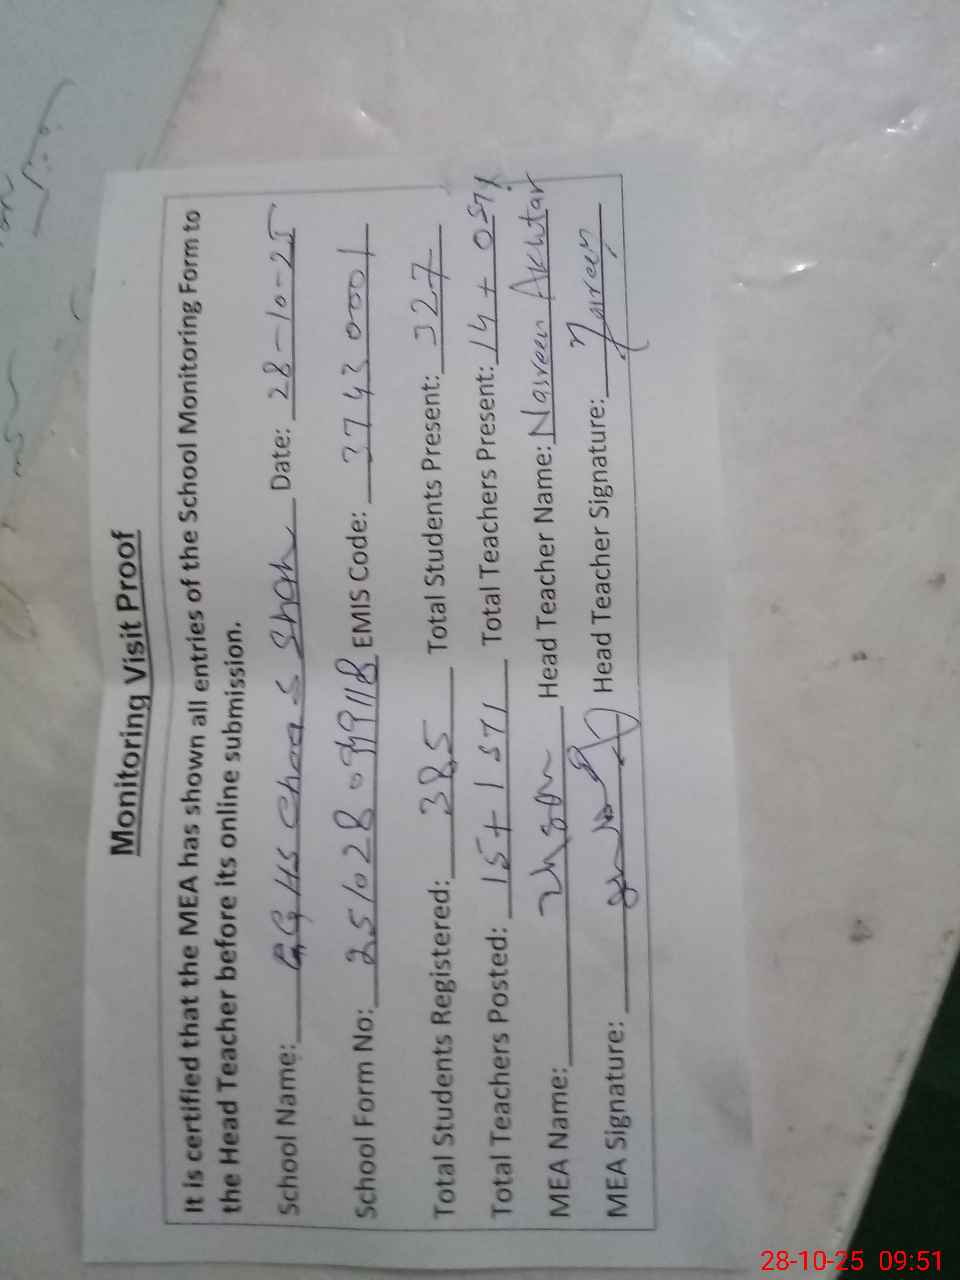 Monitoring Visit Proof
It is certified that the MEA has shown all entries of the School Monitoring Form to
the Head Teacher before its online submission.
School Name: GGHS Shah Date: 28-10-25
School Form No: EMIS Code: 37430001
Total Students Registered: 385 Total Students Present: 327
Total Teachers Posted: 15+1 STI Total Teachers Present: 14+
MEA Name: Head Teacher Name: Nasreen Akhtar
MEA Signature: Head Teacher Signature: Nasreen
28-10-25 09:51